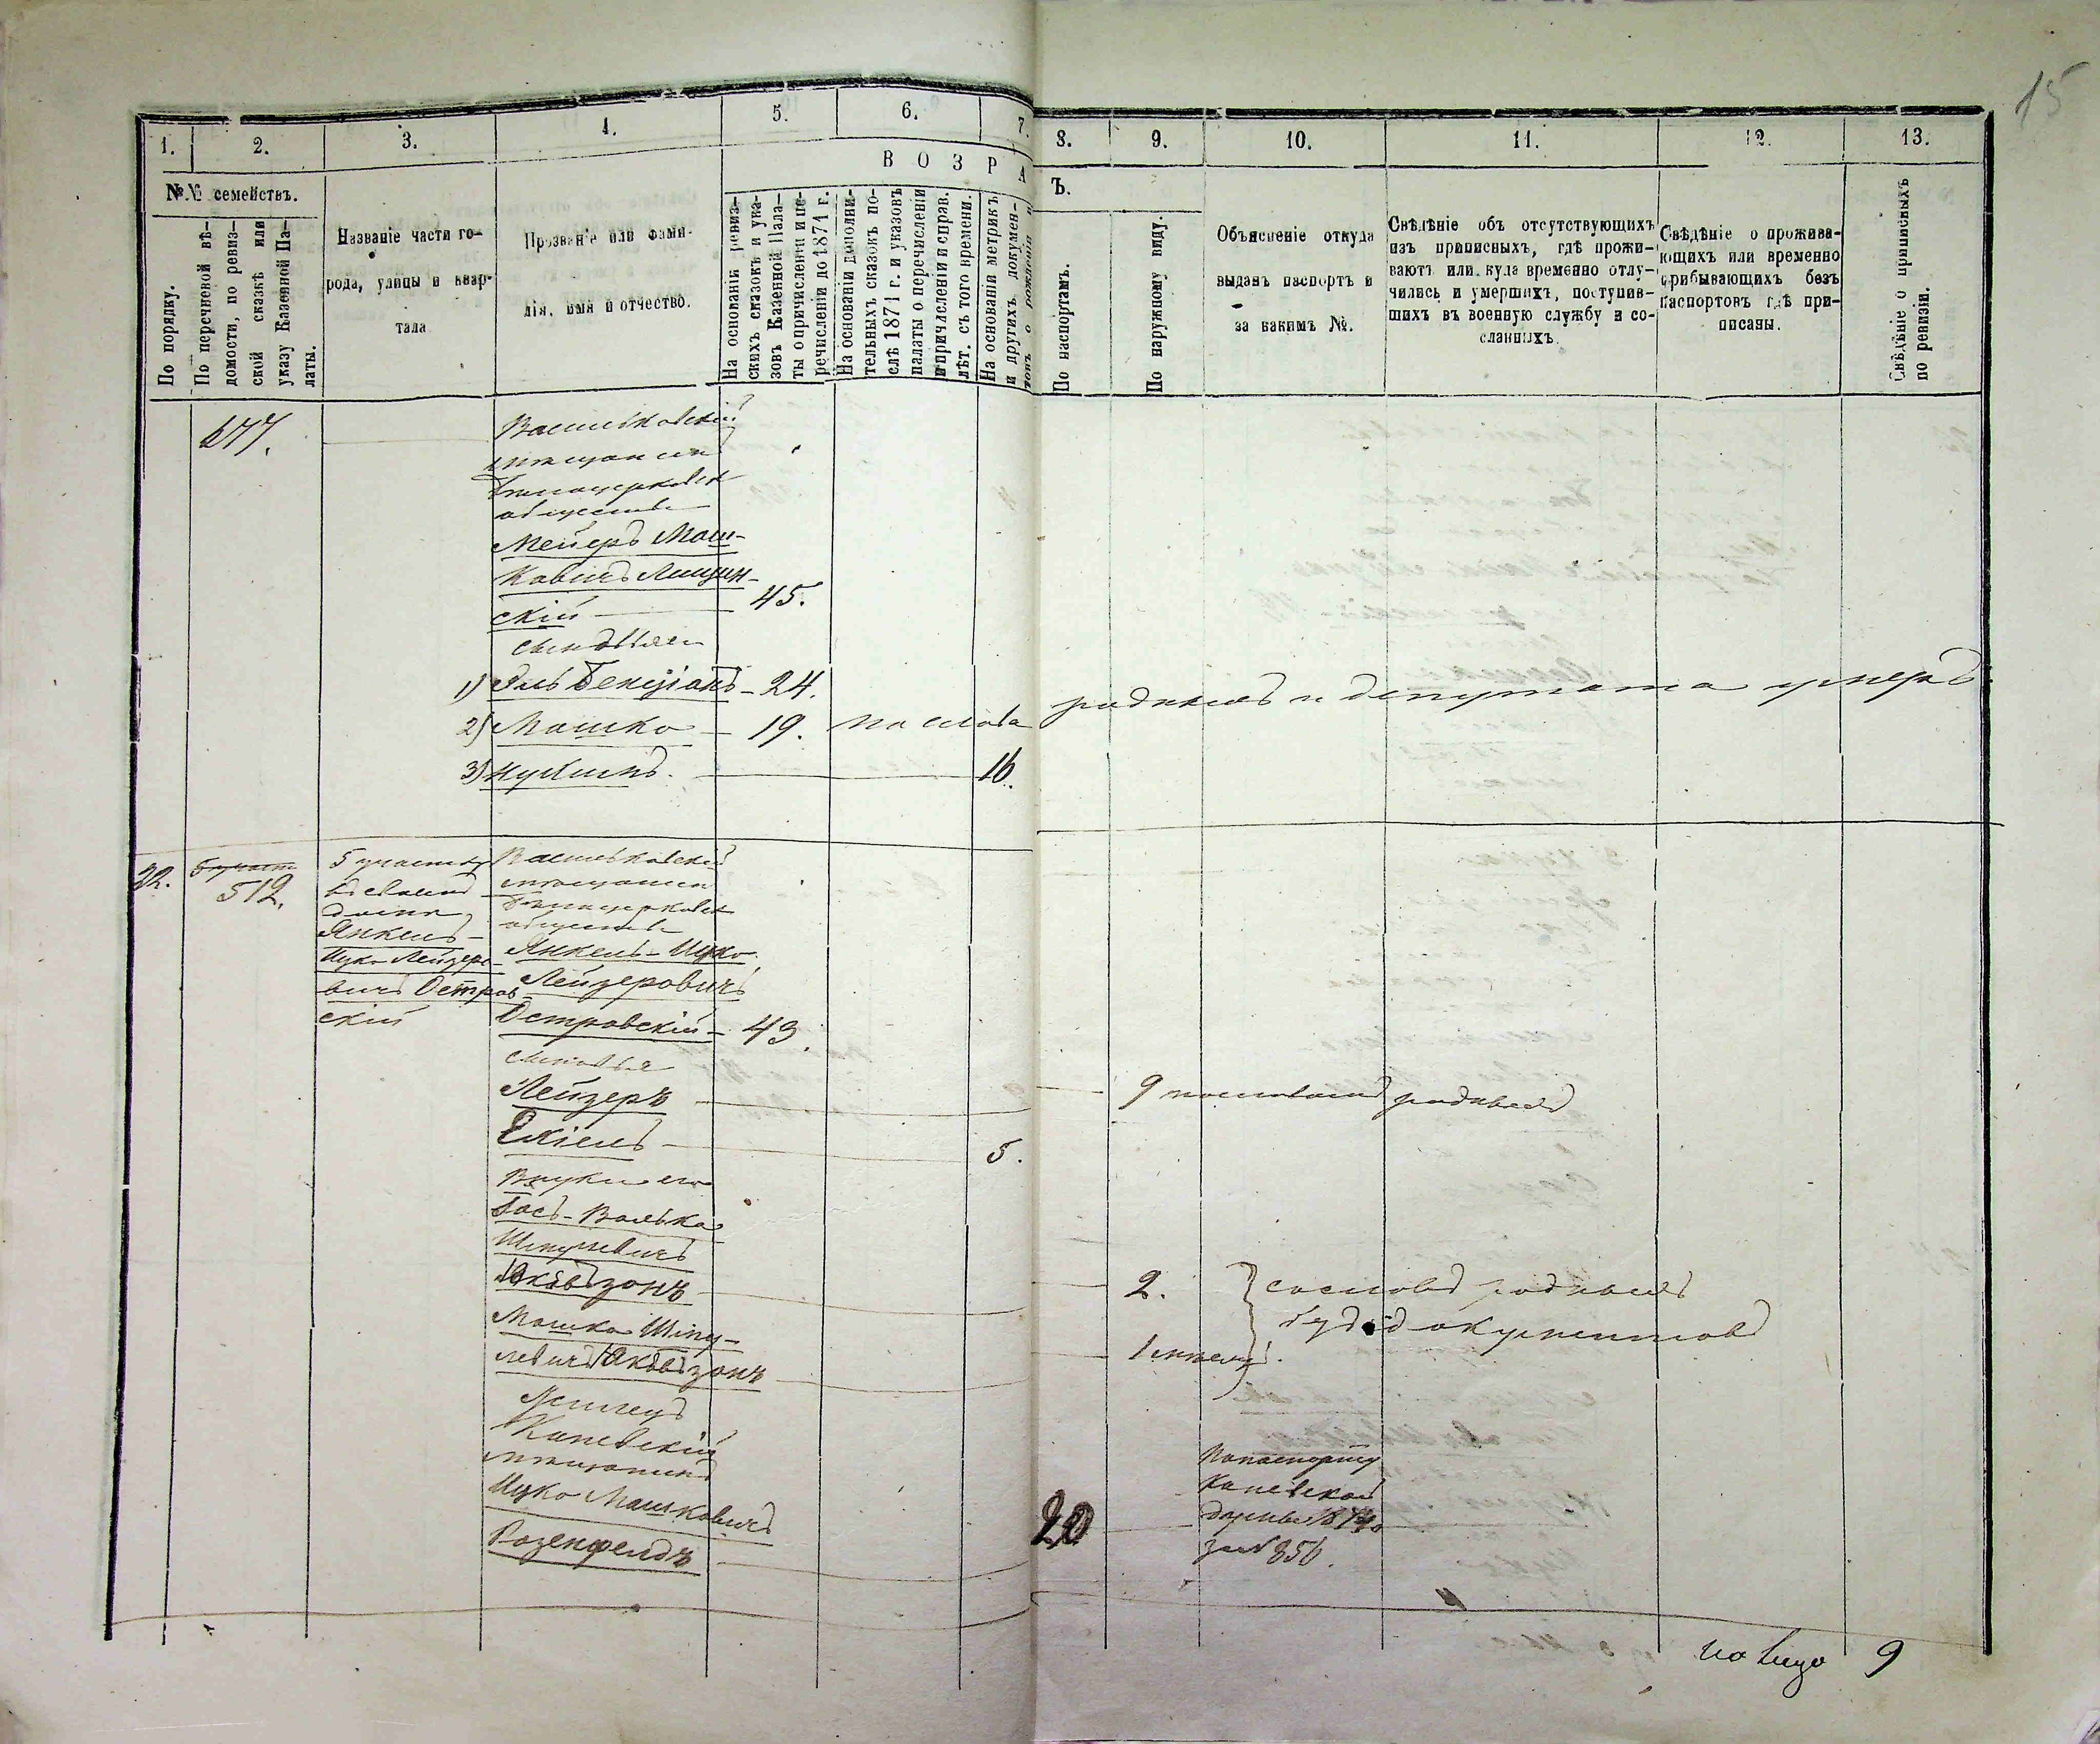 15
1.
2.
3.
4.
5.
6.
7.
8.
9.
10.
11.
12.
13.
№№ семействъ.
По порядку.
По перечневой вѣ-
домости, по ревиз-
ской сказкѣ или
указу Казенной Па-
латы.
Названіе части го-
рода, улицы и квар-
тала
Прозваніе или фами-
лія, имя и отчество.
ВОЗРА
На основаніи ревиз-
скихъ сказокъ и ука-
зовъ Казенной Пала-
ты о причисленіи и пе-
речисленіи до 1871 г.
На основаніи дополни-
тельныхъ сказокъ по-
слѣ 1871 г. и указовъ
палаты о перечисленіи
и причисленіи и справ.
лѣт. съ того времени.
На основаніи метрикъ
и другихъ докумен-
товъ о рожденіи и
Ъ.
По паспортамъ.
По наружному виду.
Объясненіе откуда
выданъ паспортъ и
за какимъ №.
Свѣдѣніе объ отсутствующихъ
изъ приписныхъ, гдѣ прожи-
ваютъ или куда временно отлу-
чились и умершихъ, поступив-
шихъ въ военную службу и со-
сланныхъ.
Свѣдѣніе о прожива-
ющихъ или временно
прибывающихъ безъ
паспортовъ гдѣ при-
писаны.
Свѣдѣніе о приписныхъ
по ревизіи.
Васильковскій
мещанин
Белоцерковск
общества
Мейеръ Мош-
ковичъ Лищин-
скій 45.
сыновья его
1) Эль 24.
2) Мошко 19. по слова родныхъ и депутата умеръ
3) Нухимъ. 16.
22.
512.
5 участку
въ своемъ
доме
Янкель-
Ицко Лейзеро-
вичъ Остров
скій
Васильковскій
мещанин
Белоцерковск
общества
Янкель-Ицко
Лейзеровичъ
Островскій 43.
сыновья
Лейзеръ 9 по словамъ родныхъ
5.
Внуки его
Шмулевичъ
2. со словъ родныхъ
безъ документовъ
Мошко Шму-
левичъ
1 месяц.
Жилецъ
Каневскій
мещанинъ
Ицко Мошковичъ
Розенфельдъ
20
По паспорту
Каневской
думы
за № 856.
на лицо 9